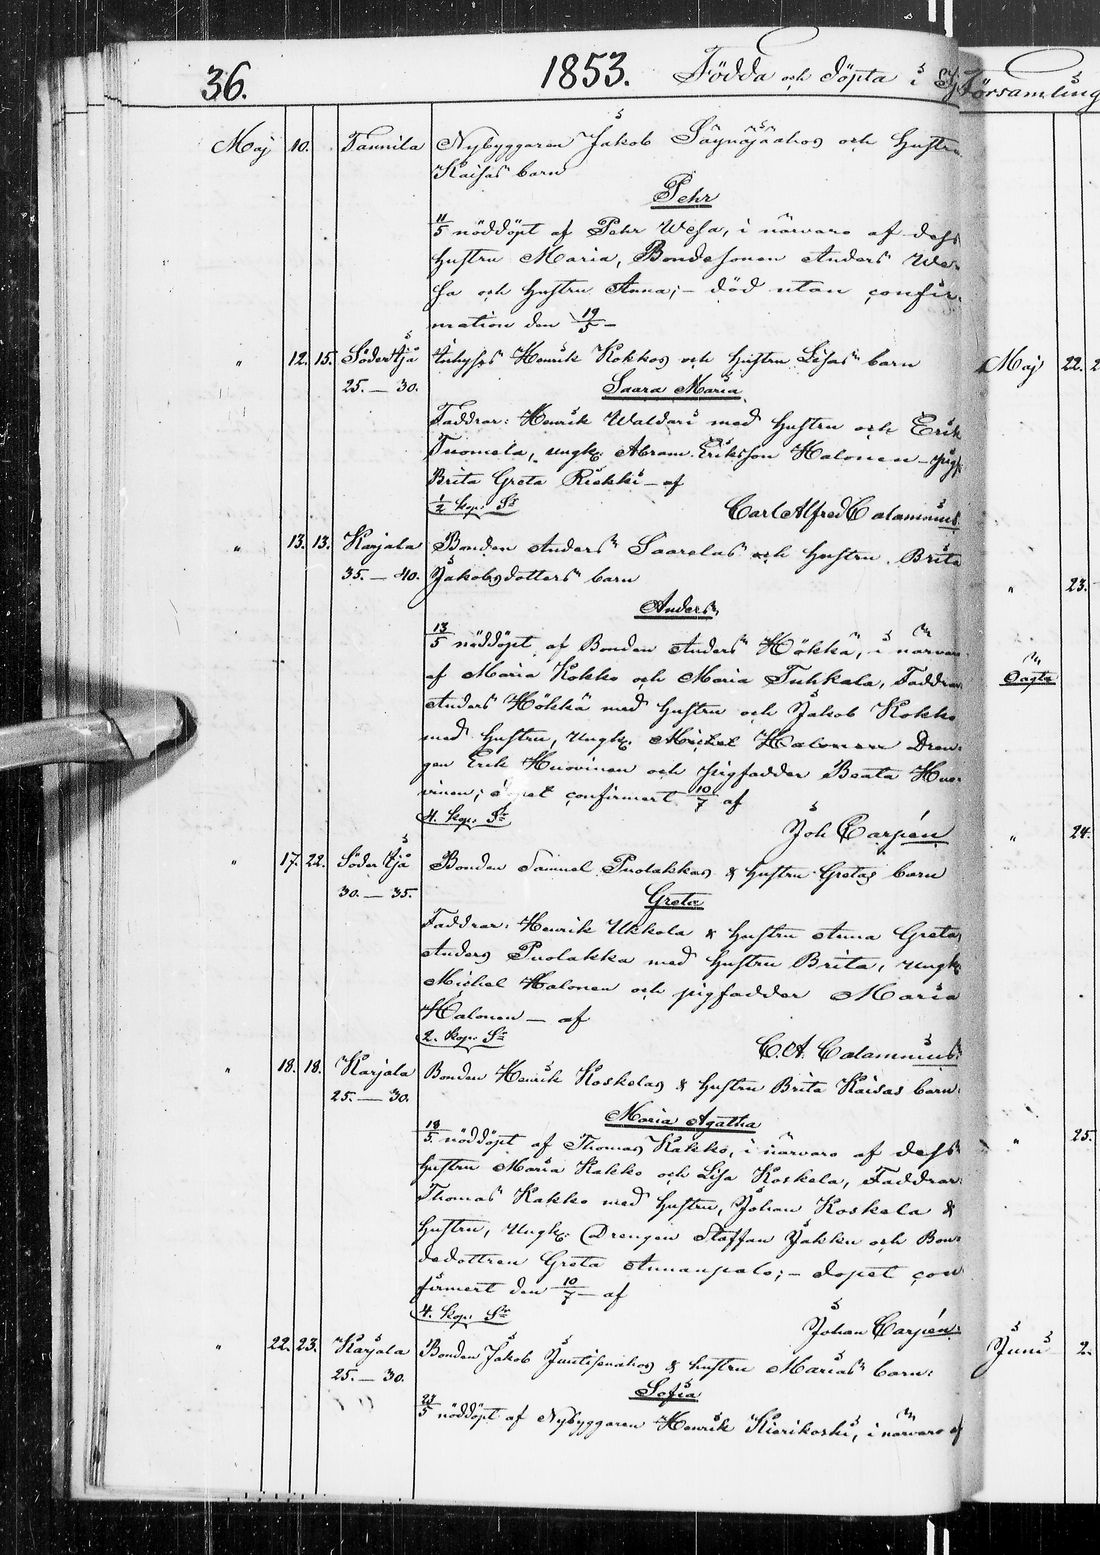 36. 1853. Födda och döpta i Församling
Maj 10. Tannila Nybyggaren Jakob Säynäjäahos och hustru
Kaisas barn
Pehr
11/5 nöddöpt af Pehr Wesa, i närvaro af dess
hustru Maria, Bondesonen Anders We-
sa och hustru Anna; – död utan confir-
mation den 19/5 –
" 12. 15. Söder Ijå Inhyses Henrik Kokkos och hustru Lisas barn
25. – 30. Saara Maria
Faddrar: Henrik Waldari med hustru och Erik
Tuomela, ungk. Abram Eriksson Halonen – pigf.
Brita Greta Riekki – af
1/2 kop. Sr Carl Alfred Calamnius.
" 13. 13. Karjala Bonden Anders Saarelas och hustru Brita
35. – 40. Jakobsdotters barn
Anders,
13/5 nöddöpt af Bonden Anders Hökkä, i närvaro
af Maria Kokko och Maria Tuhkala, Faddrar
Anders Hökkä med hustru och Jakob Kokko
med hustru, ungk. Michel Halonen Dren-
gen Erik Huovinen och pigfadder Beata Huo-
vinen; dopet confirmert 10/7 af
4. kop. Sr Joh Carpén
" 17. 22. Söder Ijå Bonden Samuel Puolakkas & hustru Gretas barn
30. – 35. Greta
Faddrar: Henrik Ukkola & hustru Anna Greta,
Anders Puolakka med hustru Brita, ungk.
Michel Halonen och pigfadder Maria
Halonen – af
2. kop. Sr C. A. Calamnius.
" 18. 18. Karjala Bonden Henrik Koskelas & hustru Brita Kaisas barn.
25. – 30. Maria Agatha
18/5 nöddöpt af Thomas Kakko, i närvaro af dess
hustru Maria Kakko och Lisa Koskela, Faddrar
Thomas Kakko med hustru, Johan Koskela &
hustru, Ungk. Drengen Staffan Jakku och Bon-
dedottren Greta Annanpalo; – dopet con
firmert den 10/7 – af
4. kop. Sr Johan Carpén.
" 22. 23. Karjala Bonden Jakob Juntisenahos & hustru Marias barn:
25. – 30. Sofia
23/5 nöddöpt af Nybyggaren Henrik Kierikoski, i närvaro af
Maj 22. 2
" 23.
" 24.
" 25.
Juni 2.